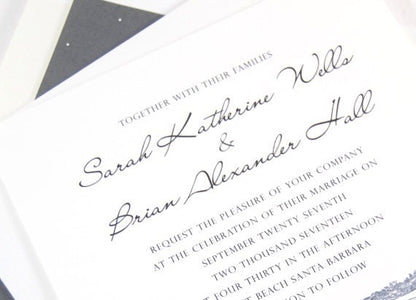 TOGETHER WITH THEIR FAMILIES
Sarah Katherine Wells
&
Brian Alexander Hall
REQUEST THE PLEASURE OF YOUR COMPANY
AT THE CELEBRATION OF THEIR MARRIAGE ON
SEPTEMBER TWENTY SEVENTH
TWO THOUSAND SEVENTEEN
AT FOUR THIRTY IN THE AFTERNOON
BEACH SANTA BARBARA
TO FOLLOW